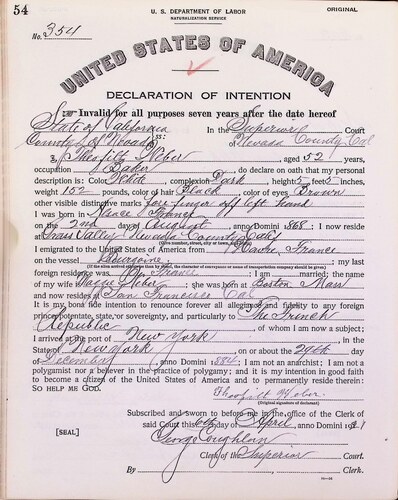 54
U. S. DEPARTMENT OF LABOR
NATURALIZATION SERVICE
ORIGINAL
No. 354
UNITED STATES OF AMERICA
DECLARATION OF INTENTION
Invalid for all purposes seven years after the date hereof
State of California
In the Superior Court
County of Nevada ss:
of Nevada County Cal
I, Weber, aged 52 years,
occupation Baker, do declare on oath that my personal
description is: Color White, complexion Dark, height 5 feet 5 inches,
weight 152 pounds, color of hair Black, color of eyes Brown
other visible distinctive marks fore finger off left hand
I was born in France
on the 2nd day of August, anno Domini 1868; I now reside
at Grass Valley Nevada County Cal
(Give number, street, city or town, and State)
I emigrated to the United States of America from Havre, France
on the vessel; my last
(If the alien arrived otherwise than by vessel, the character of conveyance or name of transportation company should be given)
foreign residence was France; I am married; the name
of my wife is Weber; she was born at Boston Mass
and now resides at San Francisco Cal
It is my bona fide intention to renounce forever all allegiance and fidelity to any foreign
prince, potentate, state, or sovereignty, and particularly to The French
Republic, of whom I am now a subject;
I arrived at the port of New York, in the
State of New York on or about the 29th day
of December, anno Domini 1884; I am not an anarchist; I am not a
polygamist nor a believer in the practice of polygamy; and it is my intention in good faith
to become a citizen of the United States of America and to permanently reside therein:
SO HELP ME GOD.
Weber
(Original signature of declarant)
Subscribed and sworn to before me in the office of the Clerk of
said Court this day of April, anno Domini 19
[SEAL]
George Coughlan
Clerk of the Superior Court.
By, Clerk.